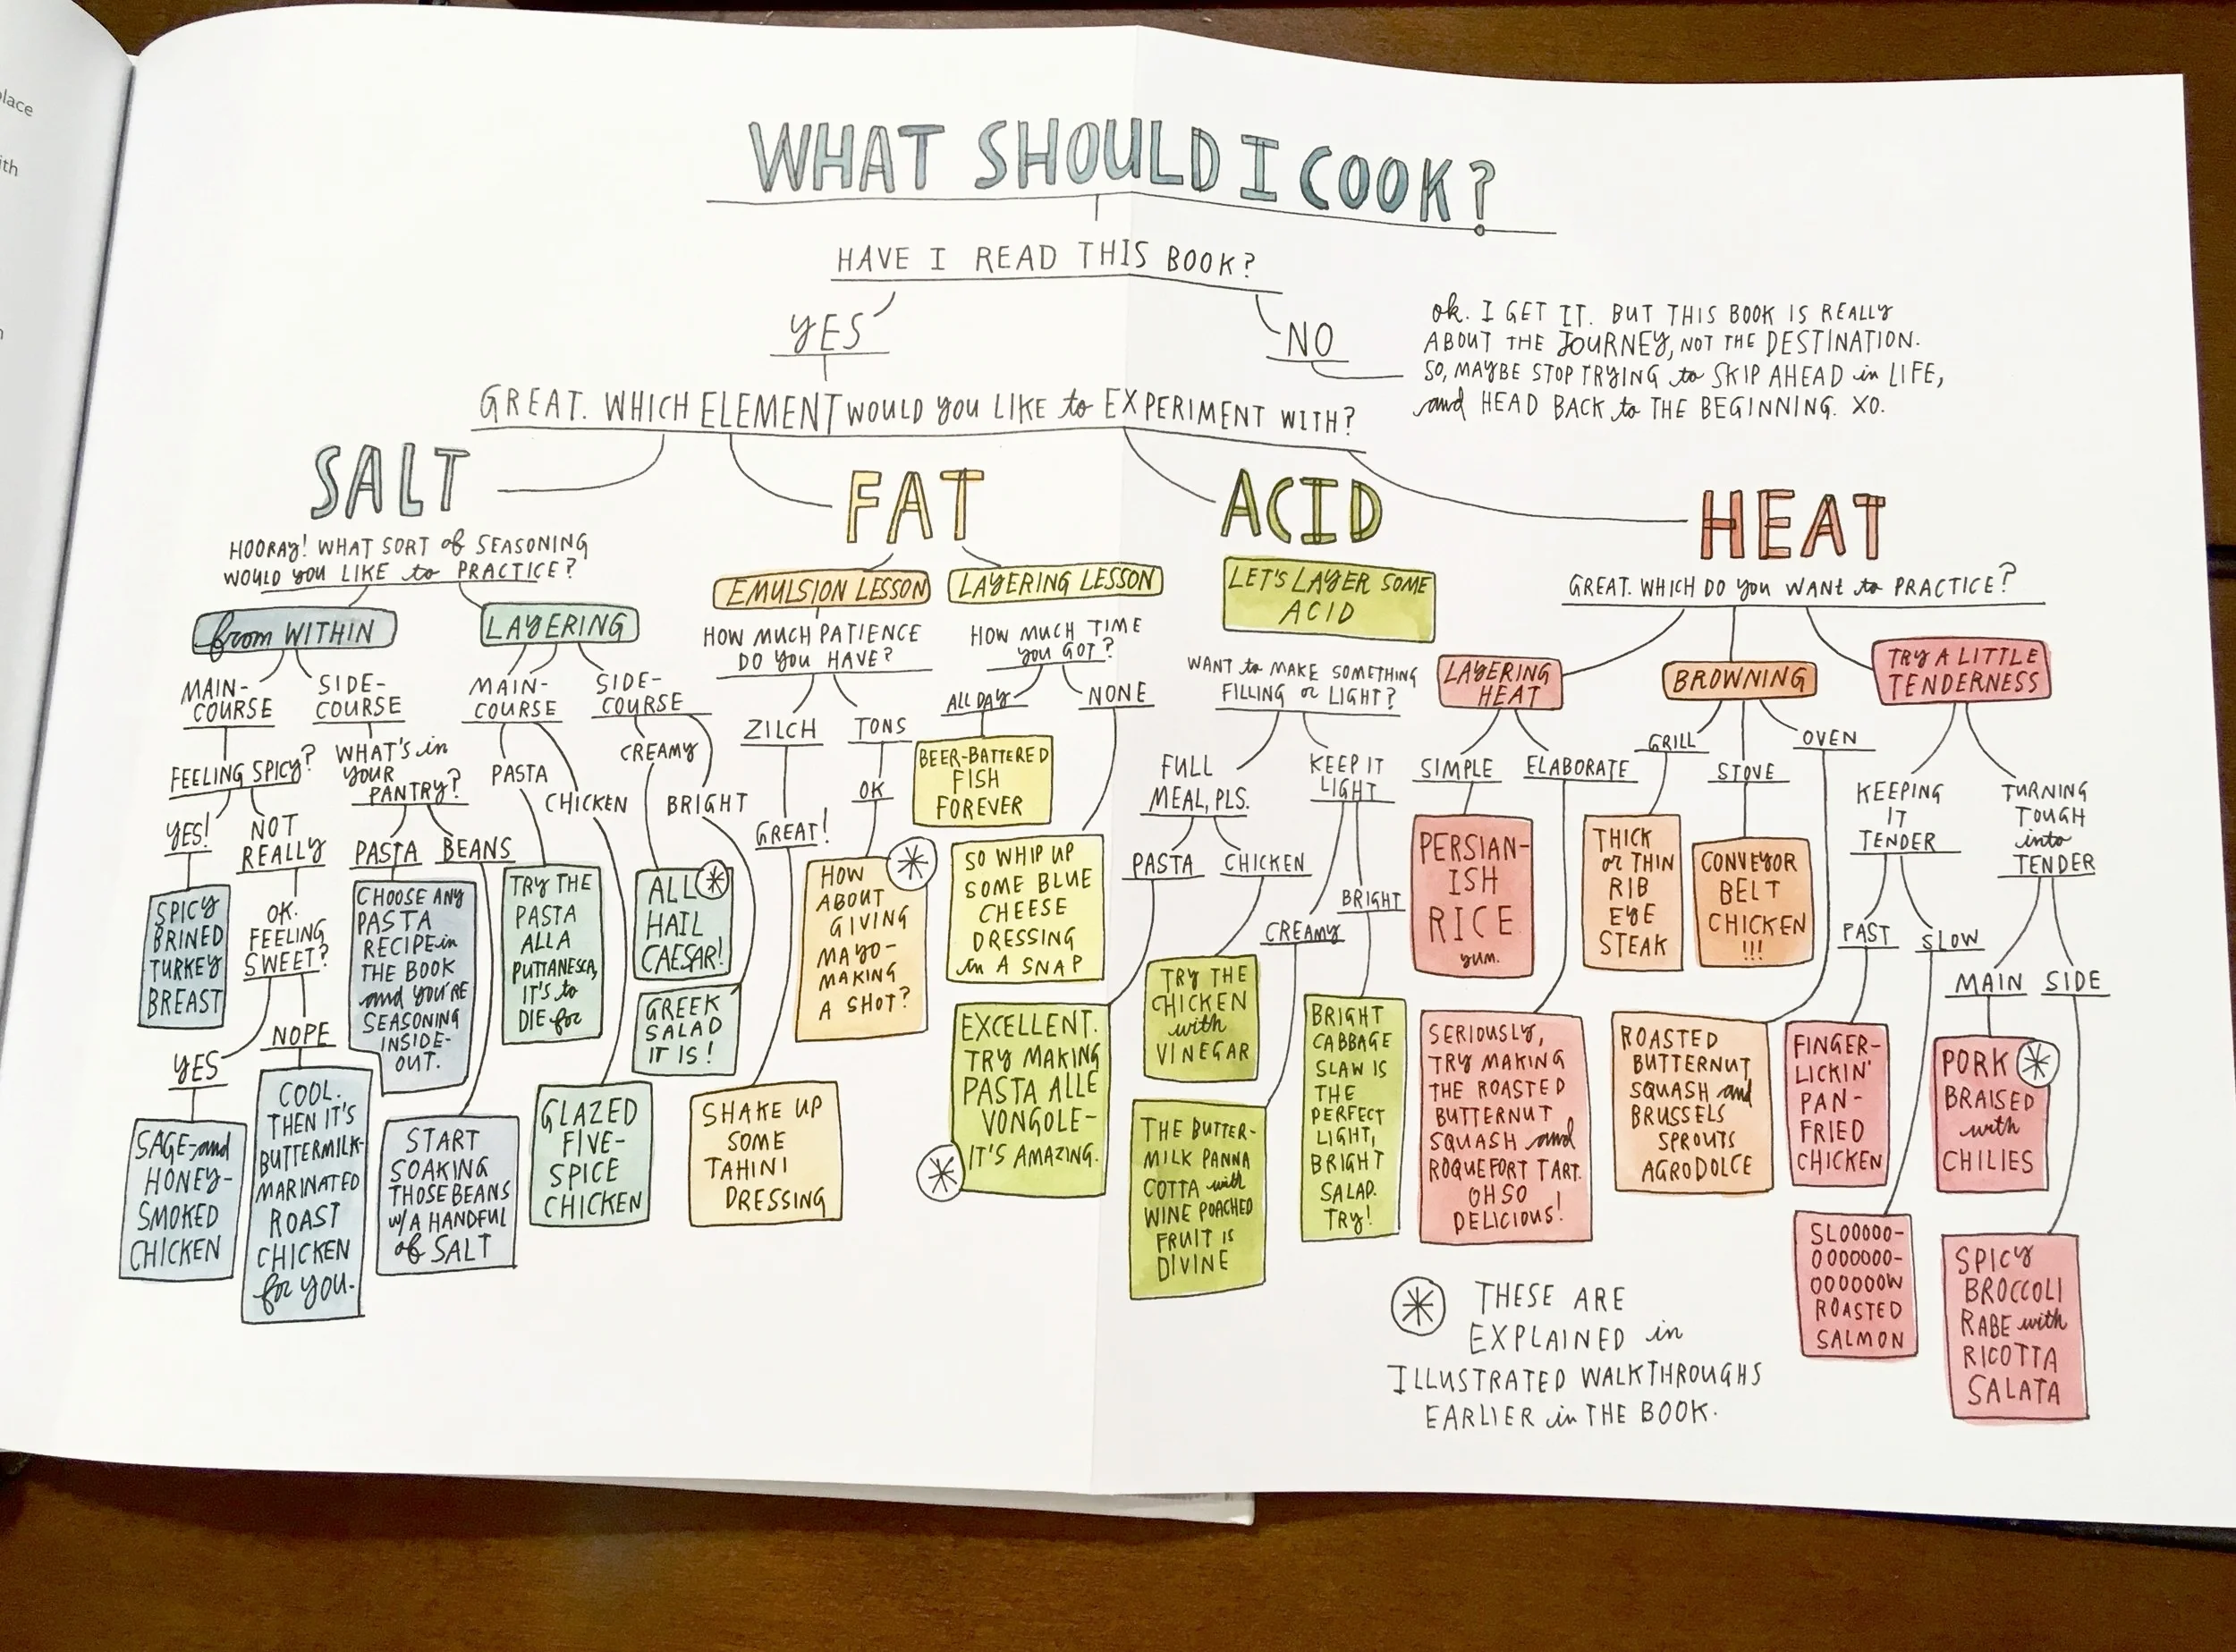 place
ith
WHAT SHOULD I COOK?
HAVE I READ THIS BOOK?
YES
NO
ok. I GET IT. BUT THIS BOOK IS REALLY
ABOUT THE JOURNEY, NOT THE DESTINATION.
SO, MAYBE STOP TRYING to SKIP AHEAD in LIFE,
and HEAD BACK to THE BEGINNING. XO.
GREAT. WHICH ELEMENT WOULD YOU LIKE to EXPERIMENT WITH?
SALT
HOORAY! WHAT SORT of SEASONING
WOULD YOU LIKE to PRACTICE?
from WITHIN
MAIN-
COURSE
FEELING SPICY?
YES!
SPICY
BRINED
TURKEY
BREAST
NOT
REALLY
OK.
FEELING
SWEET?
YES
SAGE-and
HONEY-
SMOKED
CHICKEN
NOPE
COOL.
THEN IT'S
BUTTERMILK-
MARINATED
ROAST
CHICKEN
for YOU.
SIDE-
COURSE
WHAT'S in
YOUR
PANTRY?
PASTA
CHOOSE ANY
PASTA
RECIPE in
THE BOOK
and YOU'RE
SEASONING
INSIDE-
OUT.
BEANS
START
SOAKING
THOSE BEANS
W/A HANDFUL
of SALT
LAYERING
MAIN-
COURSE
PASTA
TRY THE
PASTA
ALLA
PUTTANESCA,
IT'S to
DIE for
CHICKEN
GLAZED
FIVE-
SPICE
CHICKEN
SIDE-
COURSE
CREAMY
ALL
HAIL
CAESAR!
BRIGHT
GREEK
SALAD
IT IS!
FAT
EMULSION LESSON
HOW MUCH PATIENCE
DO YOU HAVE?
ZILCH
GREAT!
SHAKE UP
SOME
TAHINI
DRESSING
TONS
OK
HOW
ABOUT
GIVING
MAYO-
MAKING
A SHOT?
LAYERING LESSON
HOW MUCH TIME
YOU GOT?
ALL DAY
BEER-BATTERED
FISH
FOREVER
NONE
SO WHIP UP
SOME BLUE
CHEESE
DRESSING
in A SNAP
ACID
LET'S LAYER SOME
ACID
WANT to MAKE SOMETHING
FILLING or LIGHT?
FULL
MEAL, PLS.
PASTA
EXCELLENT.
TRY MAKING
PASTA ALLE
VONGOLE-
IT'S AMAZING.
CHICKEN
TRY THE
CHICKEN
with
VINEGAR
KEEP IT
LIGHT
CREAMY
THE BUTTER-
MILK PANNA
COTTA with
WINE POACHED
FRUIT IS
DIVINE
BRIGHT
BRIGHT
CABBAGE
SLAW IS
THE
PERFECT
LIGHT,
BRIGHT
SALAD.
TRY!
HEAT
GREAT. WHICH DO YOU WANT to PRACTICE?
LAYERING
HEAT
SIMPLE
PERSIAN-
ISH
RICE
YUM.
ELABORATE
SERIOUSLY,
TRY MAKING
THE ROASTED
BUTTERNUT
SQUASH and
ROQUEFORT TART.
OH SO
DELICIOUS!
BROWNING
GRILL
THICK
or THIN
RIB
EYE
STEAK
STOVE
CONVEYOR
BELT
CHICKEN
!!!
OVEN
ROASTED
BUTTERNUT
SQUASH and
BRUSSELS
SPROUTS
AGRODOLCE
TRY A LITTLE
TENDERNESS
KEEPING
IT
TENDER
FAST
FINGER-
LICKIN'
PAN-
FRIED
CHICKEN
SLOW
SLOOOOO-
OOOOOOO-
OOOOOOW
ROASTED
SALMON
TURNING
TOUGH
into
TENDER
MAIN
PORK
BRAISED
with
CHILIES
SIDE
SPICY
BROCCOLI
RABE with
RICOTTA
SALATA
THESE ARE
EXPLAINED in
ILLUSTRATED WALKTHROUGHS
EARLIER in THE BOOK.